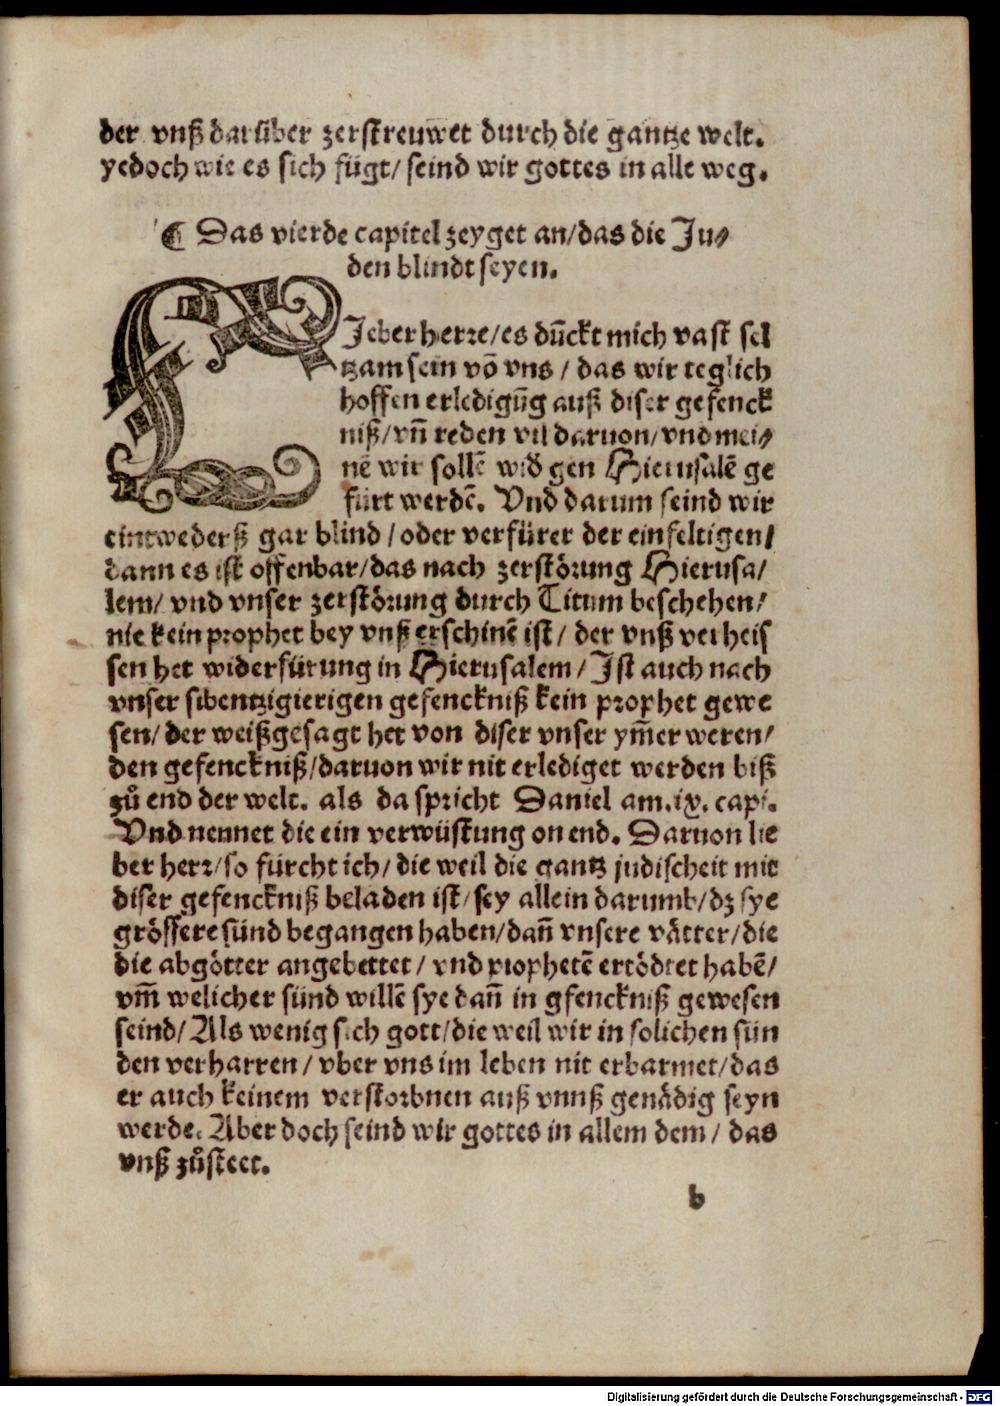 der vnß darüber zerstreuwet durch die gantze welt.
yedoch wie es sich fügt/ seind wir gottes in alle weg.
¶ Das vierde capitel zeyget an/das die Ju⸗
den blindt seyen.
LIeber herre/es dũckt mich vast sel
tzam sein võ vns / das wir teglich
hoffen erledigũg auß diser gefenck
niß/vñ reden vil daruon/vnd mei⸗
nẽ wir sollẽ wid gen Hierusalẽ ge
fürt werdẽ. Vnd darum seind wir
eintwederß gar blind /oder verfürer der einfeltigen/
dann es ist offenbar/das nach zerstörung Hierusa/
lem/ vnd vnser zerstörung durch Titum beschehen/
nie kein prophet bey vnß erschinẽ ist/ der vnß verheis
sen het widerfürung in Hierusalem/ Ist auch nach
vnser sibentzigierigen gefenckniß kein prophet gewe
sen/ der weißgesagt het von diser vnser ym̃er weren/
den gefenckniß/daruon wir nit erlediget werden biß
zů end der welt. als da spricht Daniel am.ix. capi.
Vnd nennet die ein verwüstung on end. Daruon lie
ber herr/so fürcht ich/ die weil die gantz judischeit mit
diser gefenckniß beladen ist/ sey allein darumb/dz sye
grössere sünd begangen haben/dañ vnsere vätter/die
die abgötter angebettet/ vnd prophetẽ ertödtet habẽ/
vm̃ welicher sünd willẽ sye dañ in gfenckniß gewesen
seind/ Als wenig sich gott/die weil wir in solichen sün
den verharren/ vber vns im leben nit erbarmet/das
er auch keinem verstorbnen auß vnnß genädig seyn
werde. Aber doch seind wir gottes in allem dem/ das
vnß zůsteet.
b
Digitalisierung gefördert durch die Deutsche Forschungsgemeinschaft - DFG